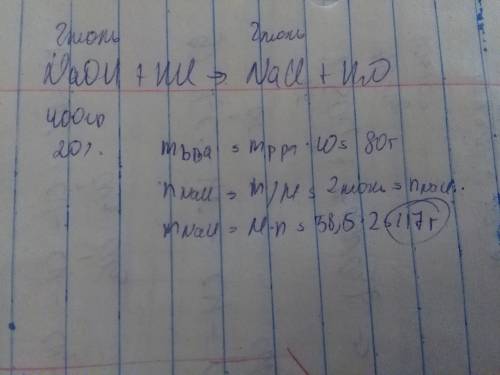 2 моль 2 моль
NaOH + HCl → NaCl + H2O
400гр
20%. m в-ва = m р-р · ω = 80г
n NaOH = m/M = 2 моль = n NaCl.
m NaCl = M·n = 58,5·2 = 117г